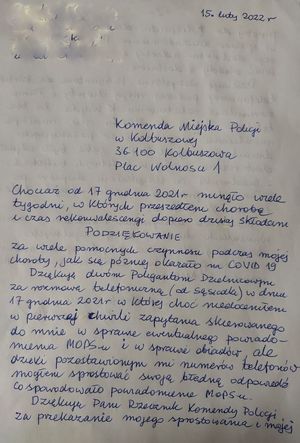 15. luty 2022 r
Komenda Miejska Policji
w Kolbuszowej
36 100 Kolbuszowa
Plac Wolności 1
Chociaż od 17 grudnia 2021r minęło wiele
tygodni, w których przeszedłem chorobę
i czas rekonwalescencji dopiero dzisiaj składam
PODZIĘKOWANIE
za wiele pomocnych czynności podczas mojej
choroby, jak się później okazało na COVID 19
Dziękuję dwóm Policjantom Dzielnicowym
za rozmowę telefoniczną (od sąsiadki) w dniu
17 grudnia 2021r w której choć niedoceniłem
w pierwszej chwili zapytania skierowanego
do mnie w sprawie ewentualnego powiado-
mienia MOPS-u i w sprawie obiadów, ale
dzięki pozostawionym mi numerów telefonów
mogłem sprostować swoją błędną odpowiedź
co spowodowało powiadomienie MOPS-u.
Dziękuję Pani Rzecznik Komendy Policji
za przekazanie mojego sprostowania i mojej